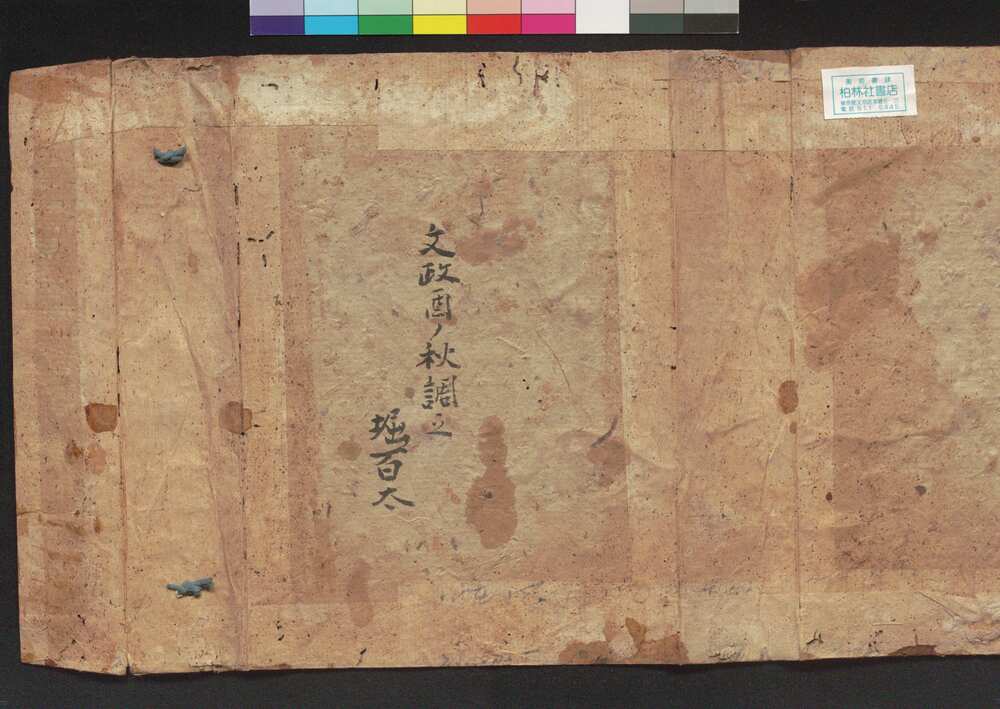 文政酉ノ秋調之
堀百太
柏林社書店